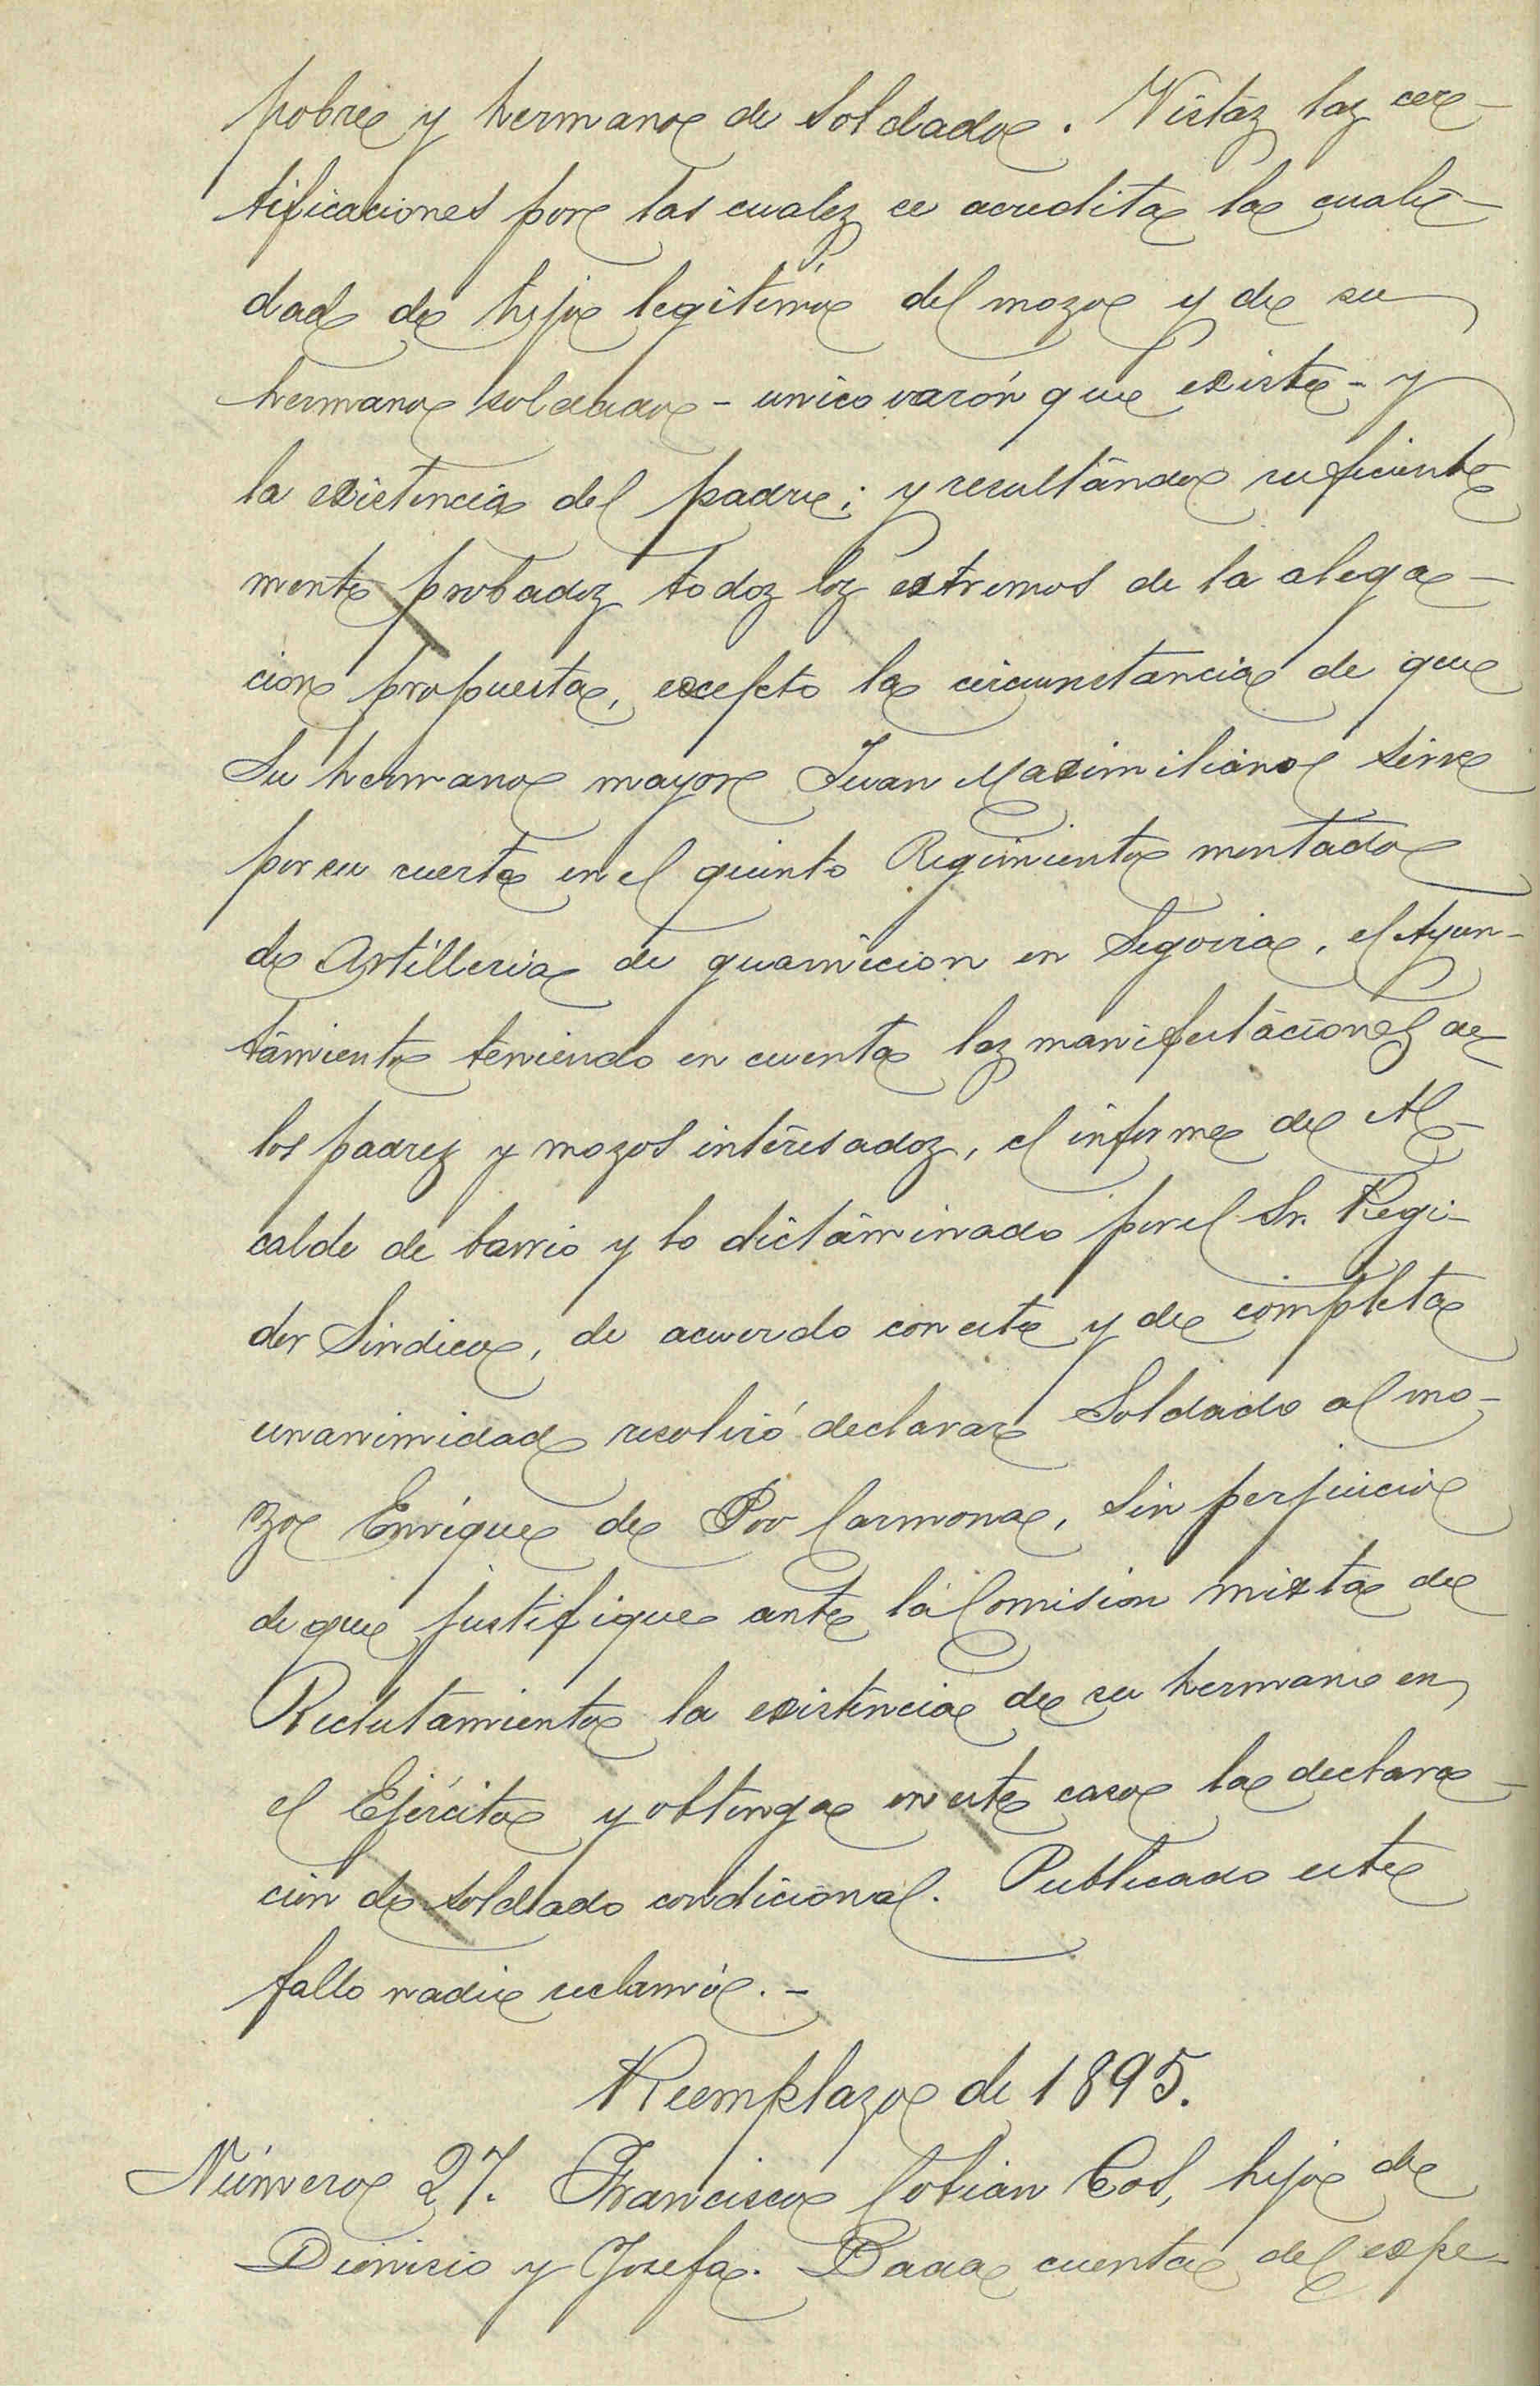 pobre y hermano de soldado. Vistas las cer-
tificaciones por las cuales se acredita la cuali-
dad de hijo legitimo del mozo y de su
hermano soldado - unico varón que existe - y
la existencia del padre; y resultando suficiente
mente probados todos los extremos de la alega-
cion propuesta, excepto la circunstancia de que
su hermano mayor Juan Maximiliano sirve
por su suerte en el quinto Regimiento montado
de Artilleria de guarnicion en Segovia, el Ayun-
tamiento teniendo en cuenta las manifestaciones de
los padres y mozos interesados, el informe del Al-
calde de barrio y lo dictaminado por el Sr. Regi-
dor Sindico, de acuerdo con este y de completa
unanimidad resolvió declarar Soldado al mo-
zo Enrique de Poo Carmona, sin perjuicio
de que justifique ante la Comision mixta de
Reclutamiento la existencia de su hermano en
el Ejército y obtenga en este caso la declara-
cion de soldado condicional. Publicado este
fallo nadie reclamó. -
Reemplazo de 1895.
Número 27. Francisco Cobian Cos, hijo de
Dionisio y Josefa. Dada cuenta del expe-